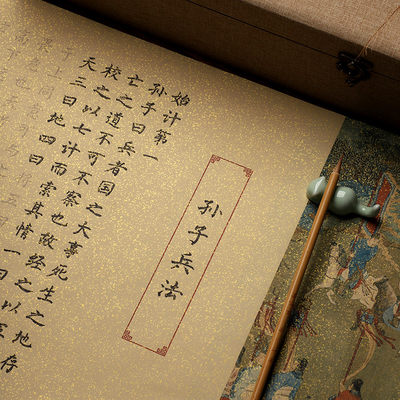 孙子兵法
始计第一
孙子曰兵者国之大事死生之地存
亡之道不可不察也故经之以五
校之以七计而索其情一曰
天三曰地四曰